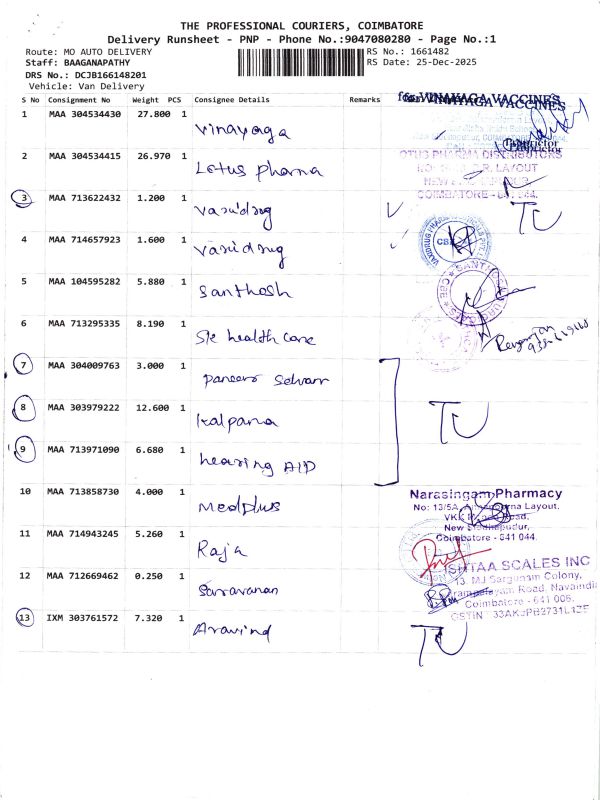 THE PROFESSIONAL COURIERS, COIMBATORE
Delivery Runsheet - PNP - Phone No.:9047080280 - Page No.:1
Route: MO AUTO DELIVERY
RS No.: 1661482
Staff: BAAGANAPATHY
RS Date: 25-Dec-2025
DRS No.: DCJB166148201
Vehicle: Van Delivery
S No Consignment No Weight PCS Consignee Details Remarks
for VINAYAGA VACCINES
1 MAA 304534430 27.800 1 Vinayaga
Proprietor
2 MAA 304534415 26.970 1 Lotus pharma
LOTUS PHARMA DISTRIBUTORS
LAYOUT
COIMBATORE - 641 044.
3 MAA 713622432 1.200 1 Varidrug
4 MAA 714657923 1.600 1 Varidrug
5 MAA 104595282 5.880 1 Santhosh
6 MAA 713295335 8.190 1 Sk health care
7 MAA 304009763 3.000 1 Paneer Selvam
8 MAA 303979222 12.600 1 Kalpana
9 MAA 713971090 6.680 1 hearing AID
10 MAA 713858730 4.000 1 Medplus
Narasingam Pharmacy
No: 13/5A, Layout,
New Siddhapudur,
Coimbatore - 641 044.
11 MAA 714943245 5.260 1 Raja
ISHTAA SCALES INC
13, MJ Sargunam Colony,
Road, Navaindia
Coimbatore - 641 006.
12 MAA 712669462 0.250 1 Saravanan
13 IXM 303761572 7.320 1 Aravind